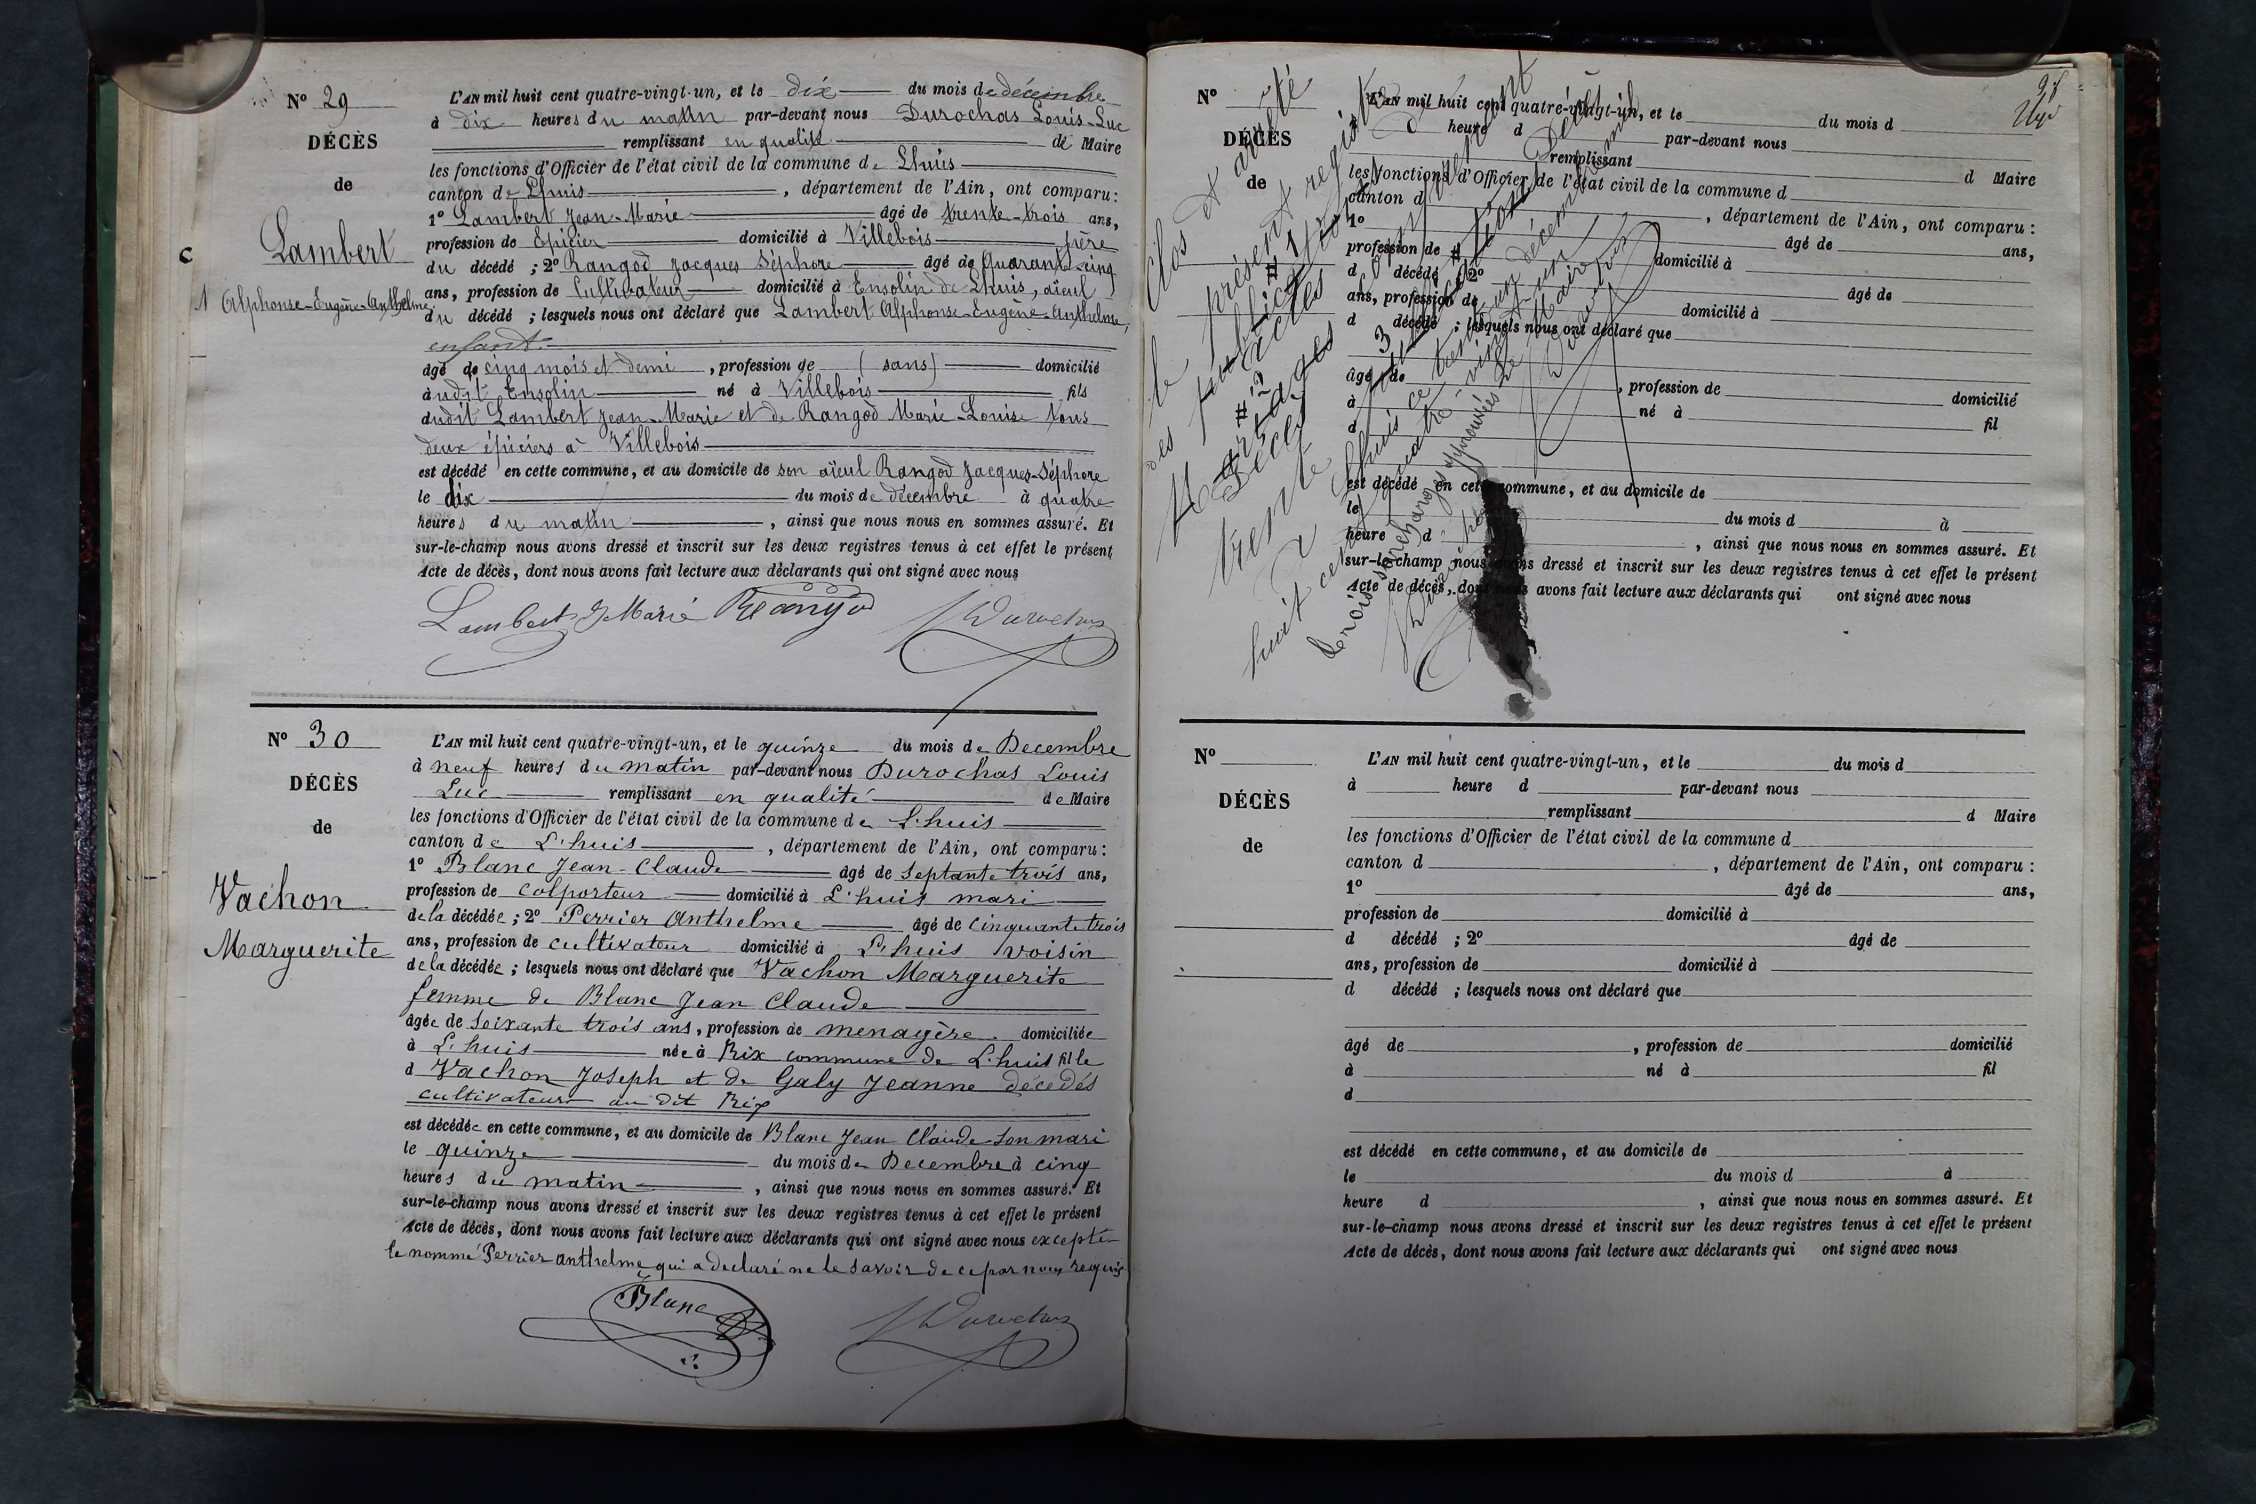 N° 29
DÉCÈS
de
Lambert
Alphonse-Eugène-Anthelme
L'AN mil huit cent quatre-vingt-un, et le dix du mois de décembre
à dix heures du matin par-devant nous Durochas Louis-Luc
remplissant en qualité de Maire
les fonctions d'Officier de l'état civil de la commune de Lhuis
canton de Lhuis, département de l'Ain, ont comparu :
1° Lambert Jean-Marie âgé de trente-trois ans,
profession de Epicier domicilié à Villebois père
du décédé ; 2° Rangod Jacques Séphore âgé de Quarante cinq
ans, profession de Cultivateur domicilié à Ensolin de Lhuis, aïeul
du décédé ; lesquels nous ont déclaré que Lambert Alphonse-Eugène-Anthelme,
enfant
âgé de cinq mois et demi, profession de (sans) domicilié
à udit Ensolin né à Villebois fils
dudit Lambert Jean-Marie et de Rangod Marie-Louise tous
deux épiciers à Villebois
est décédé en cette commune, et au domicile de son aïeul Rangod Jacques-Séphore
le dix du mois de décembre à quatre
heures du matin, ainsi que nous nous en sommes assuré. Et
sur-le-champ nous avons dressé et inscrit sur les deux registres tenus à cet effet le présent
Acte de décès, dont nous avons fait lecture aux déclarants qui ont signé avec nous
Lambert J Marie Rangod L Durochas
N° 30
DÉCÈS
de
Vachon
Marguerite
L'AN mil huit cent quatre-vingt-un, et le quinze du mois de Decembre
à neuf heures du matin par-devant nous Durochas Louis
Luc remplissant en qualité de Maire
les fonctions d'Officier de l'état civil de la commune de L'huis
canton de L'huis, département de l'Ain, ont comparu :
1° Blanc Jean-Claude âgé de Septante trois ans,
profession de colporteur domicilié à L'huis mari
de la décédée ; 2° Perrier Anthelme âgé de cinquante trois
ans, profession de cultivateur domicilié à L'huis voisin
de la décédée ; lesquels nous ont déclaré que Vachon Marguerite
femme de Blanc Jean Claude
âgée de soixante trois ans, profession de menagère domiciliée
à L'huis née à Rix commune de L'huis fille
d Vachon Joseph et de Galy Jeanne décedés
cultivateurs au dit Rix
est décédée en cette commune, et au domicile de Blanc Jean Claude son mari
le quinze du mois de Decembre à cinq
heures du matin, ainsi que nous nous en sommes assuré. Et
sur-le-champ nous avons dressé et inscrit sur les deux registres tenus à cet effet le présent
Acte de décès, dont nous avons fait lecture aux déclarants qui ont signé avec nous excepté
le nommé Perrier anthelme qui a declaré ne le savoir de ce par nous requis
Blanc L Durochas
N°
DÉCÈS
de
L'AN mil huit cent quatre-vingt-un, et le du mois d
à heure d par-devant nous
remplissant d Maire
les fonctions d'Officier de l'état civil de la commune d
canton d, département de l'Ain, ont comparu :
1° âgé de ans,
profession de domicilié à
d décédé ; 2° âgé de
ans, profession de domicilié à
d décédé ; lesquels nous ont déclaré que
âgé de, profession de domicilié
à né à fil
d
est décédé en cette commune, et au domicile de
le du mois d à
heure d, ainsi que nous nous en sommes assuré. Et
sur-le-champ nous avons dressé et inscrit sur les deux registres tenus à cet effet le présent
Acte de décès, dont nous avons fait lecture aux déclarants qui ont signé avec nous
Clos et arrêté
le présent registre
des publications
# 1
actes
# 2
Mariages
# 3
Décès
trente
à Lhuis ce trente un décembre mil
huit cent quatre-vingt-un
Le Maire
L Durochas
N°
DÉCÈS
de
L'AN mil huit cent quatre-vingt-un, et le du mois d
à heure d par-devant nous
remplissant d Maire
les fonctions d'Officier de l'état civil de la commune d
canton d, département de l'Ain, ont comparu :
1° âgé de ans,
profession de domicilié à
d décédé ; 2° âgé de
ans, profession de domicilié à
d décédé ; lesquels nous ont déclaré que
âgé de, profession de domicilié
à né à fil
d
est décédé en cette commune, et au domicile de
le du mois d à
heure d, ainsi que nous nous en sommes assuré. Et
sur-le-champ nous avons dressé et inscrit sur les deux registres tenus à cet effet le présent
Acte de décès, dont nous avons fait lecture aux déclarants qui ont signé avec nous